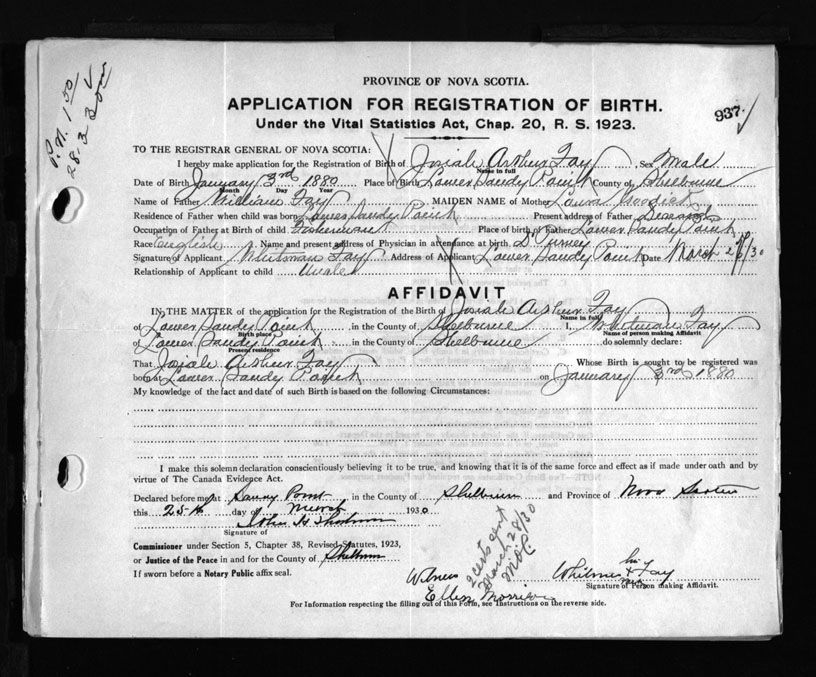 P.N. 1.50
28-3-30
937
PROVINCE OF NOVA SCOTIA.
APPLICATION FOR REGISTRATION OF BIRTH.
Under the Vital Statistics Act, Chap. 20, R. S. 1923.
TO THE REGISTRAR GENERAL OF NOVA SCOTIA:
I hereby make application for the Registration of Birth of Josiah Arthur Fay Sex Male
Names in full
Date of Birth January 3rd 1880 Place of Birth Lower Sandy Point County of Shelburne
Month Day Year
Name of Father William Fay MAIDEN NAME of Mother Laura
Residence of Father when child was born Lower Sandy Point Present address of Father Deceased
Occupation of Father at Birth of child Fisherman Place of birth of Father Lower Sandy Point
Race English Name and present address of Physician in attendance at birth Dr
Signature of Applicant Whitman Fay Address of Applicant Lower Sandy Point Date March 26/30
Relationship of Applicant to child Uncle
AFFIDAVIT
IN THE MATTER of the application for the Registration of the Birth of Josiah Arthur Fay
Name in full
of Lower Sandy Point in the County of Shelburne I, Whitman Fay
Birth place Name of person making Affidavit
of Lower Sandy Point in the County of Shelburne do solemnly declare:
Present residence
That Josiah Arthur Fay Whose Birth is sought to be registered was
born at Lower Sandy Point on January 3rd 1880
My knowledge of the fact and date of such Birth is based on the following Circumstances:
I make this solemn declaration conscientiously believing it to be true, and knowing that it is of the same force and effect as if made under oath and by
virtue of The Canada Evidence Act.
Declared before me at Sandy Point in the County of Shelburne and Province of Nova Scotia
this 25th day of March 1930
John H
Signature of
Commissioner under Section 5, Chapter 38, Revised Statutes, 1923,
or Justice of the Peace in and for the County of Shelburne
If sworn before a Notary Public affix seal.
2 certs sent
March 28/30
Witness
Ellen Morrison
his
Whitman X Fay
mark
Signature of Person making Affidavit.
For Information respecting the filling out of this Form, see Instructions on the reverse side.